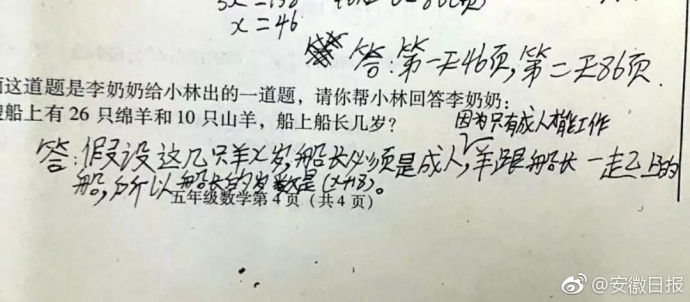 x=46
答:第一天46页,第二天86页.
这道题是李奶奶给小林出的一道题，请你帮小林回答李奶奶：
船上有26只绵羊和10只山羊，船上船长几岁？
因为只有成人才能工作
答:假设这几只羊x岁,船长必须是成人,羊跟船长一起上的
船,所以船长的岁数是(x+18)。
五年级数学第4页（共4页）
@安徽日报